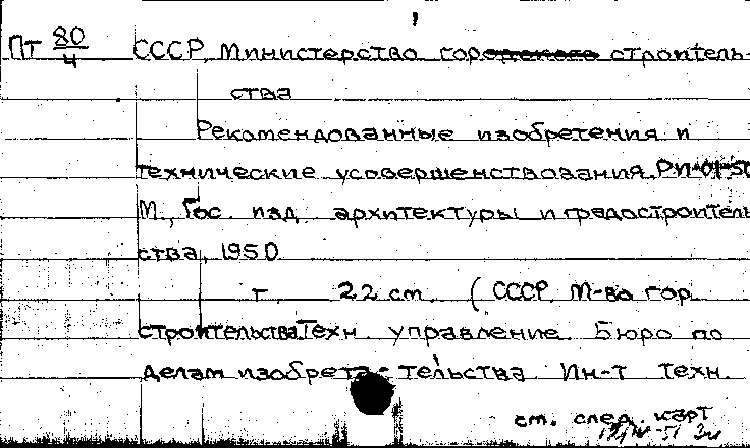 Пт 80/4 СССР, Министерство город строитель-
ства
Рекомендованные изобретения и
технические усовершенствования. РИ-01-50
М., Гос. изд. архитектуры и градостроитель
ства, 1950
т. 22 cm. (СССР. М-во гор.
строительства. Техн. управление. Бюро по
делам изобретательства. Ин-т техн.
см. след. карт